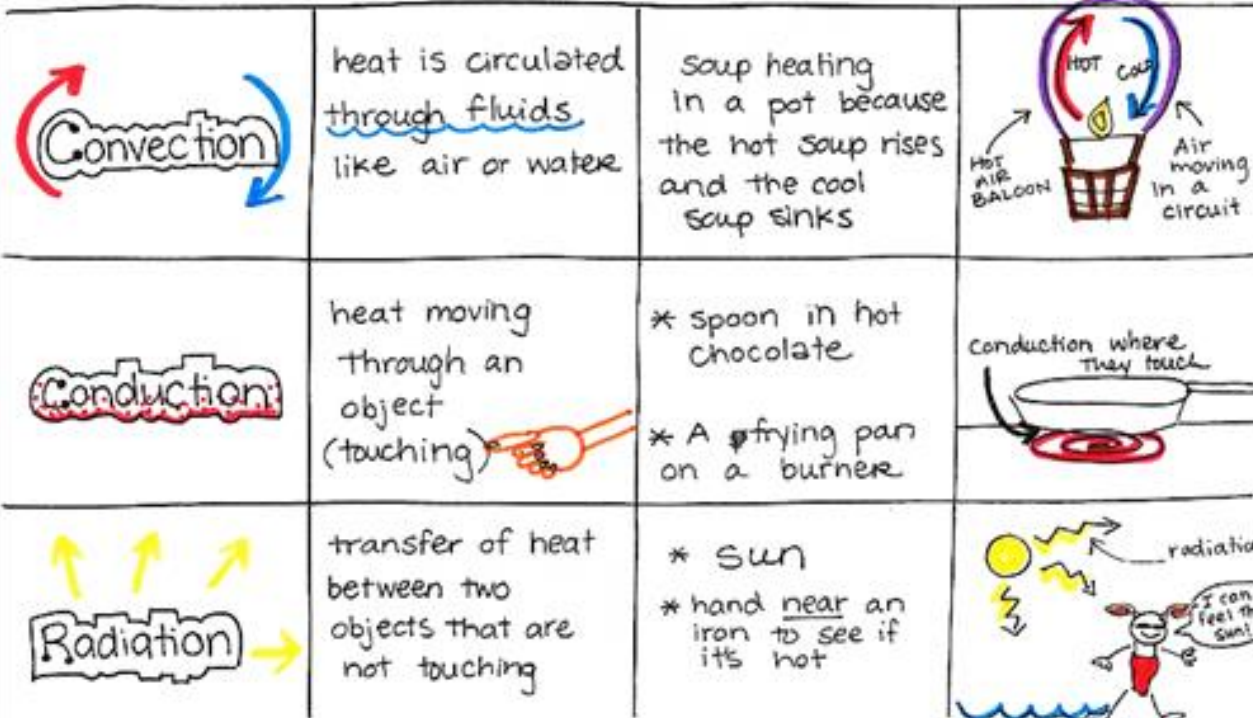 Convection
heat is circulated
through fluids
like air or water
soup heating
in a pot because
the hot soup rises
and the cool
soup sinks
HOT
COLD
HOT
AIR
BALOON
Air
moving
in a
circuit
Conduction
heat moving
through an
object
(touching)
* spoon in hot
chocolate
* A frying pan
on a burner
conduction where
they touch
Radiation
transfer of heat
between two
objects that are
not touching
* sun
* hand near an
iron to see if
it's hot
radiatio
I can
feel th
sun!